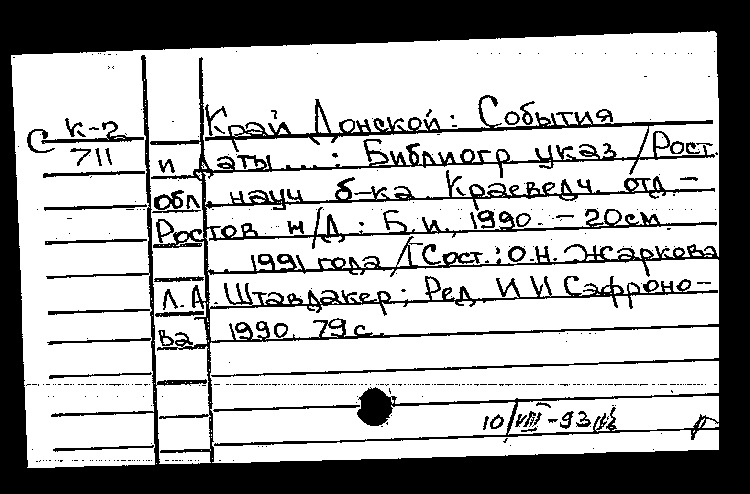 Край Донской: События
С К-2
711
и даты...: Библиогр указ / Рост.
обл. науч б-ка. Краеведч. отд. -
Ростов н/Д: Б.и., 1990. - 20см.
. 1991 года / [Сост.: О.Н. Жаркова
Л.А. Штавдакер; Ред. И И Сафроно-
ва 1990. 79с.
10/VIII-93